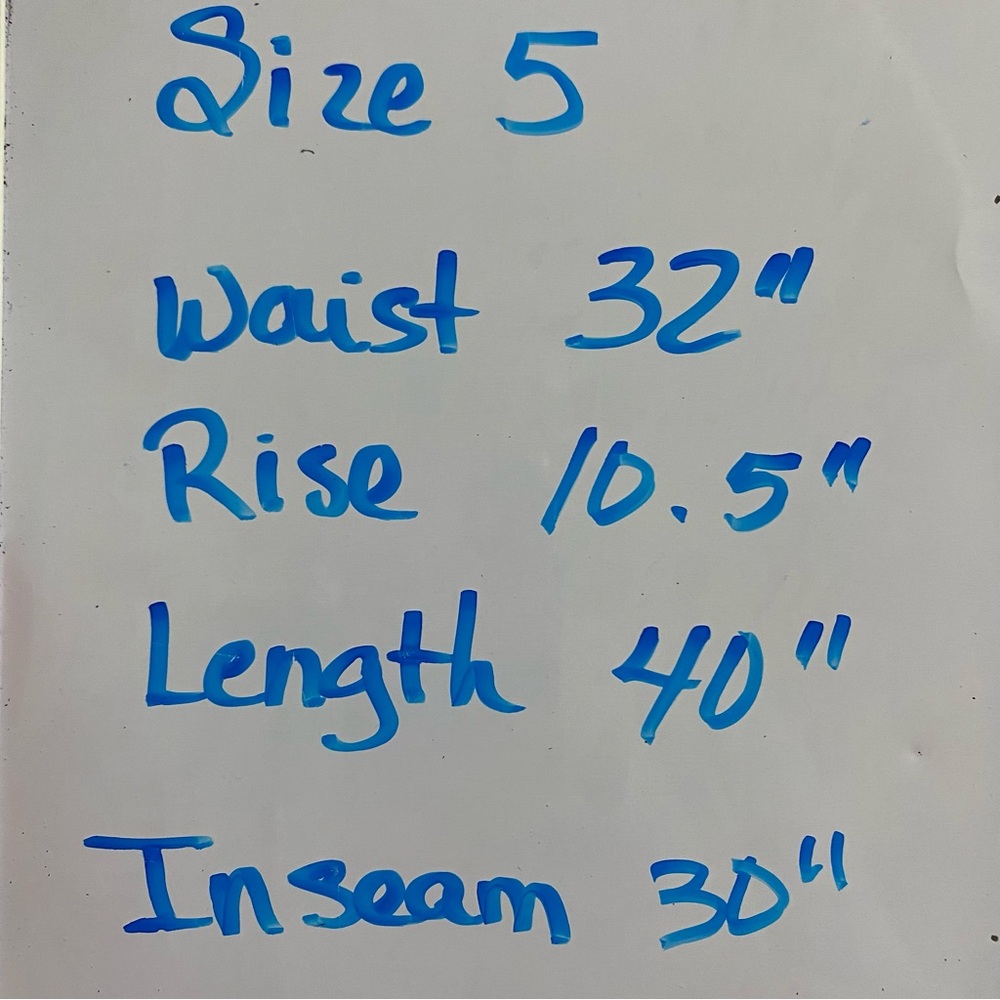 Size 5
Waist 32"
Rise 10.5"
Length 40"
Inseam 30"